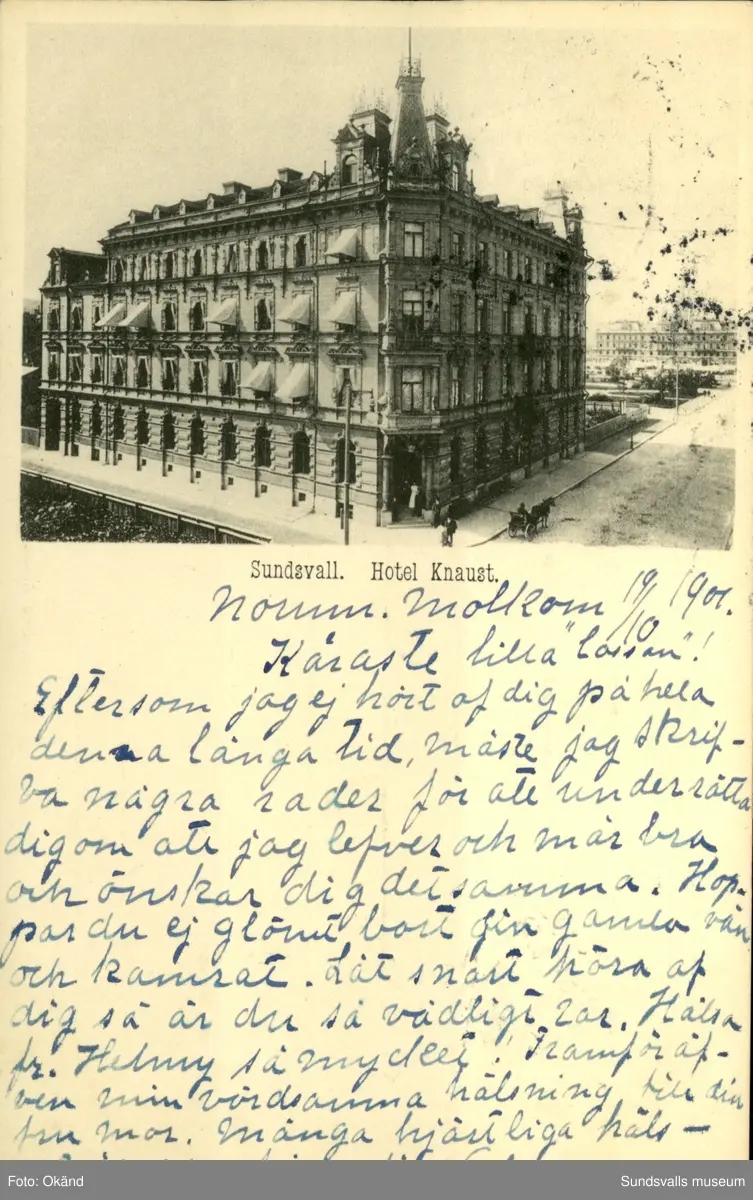 Sundsvall. Hotel Knaust.
Norum. Molkom 19/10 1901.
Käraste lilla "Lossan"!
Eftersom jag ej hört af dig på hela
denna långa tid, måste jag skrif-
va några rader för att underrätta
dig om att jag lefver och mår bra
och önskar dig detsamma. Hop-
pas du ej glömt bort din gamla vän
och kamrat. Låt snart höra af
dig så är du så vädligt rar. Hälsa
fr. Helmy så mycket! Framför äf-
ven min vördsamma hälsning till din
fru mor. Många hjärtliga häls-
Foto: Okänd
Sundsvalls museum